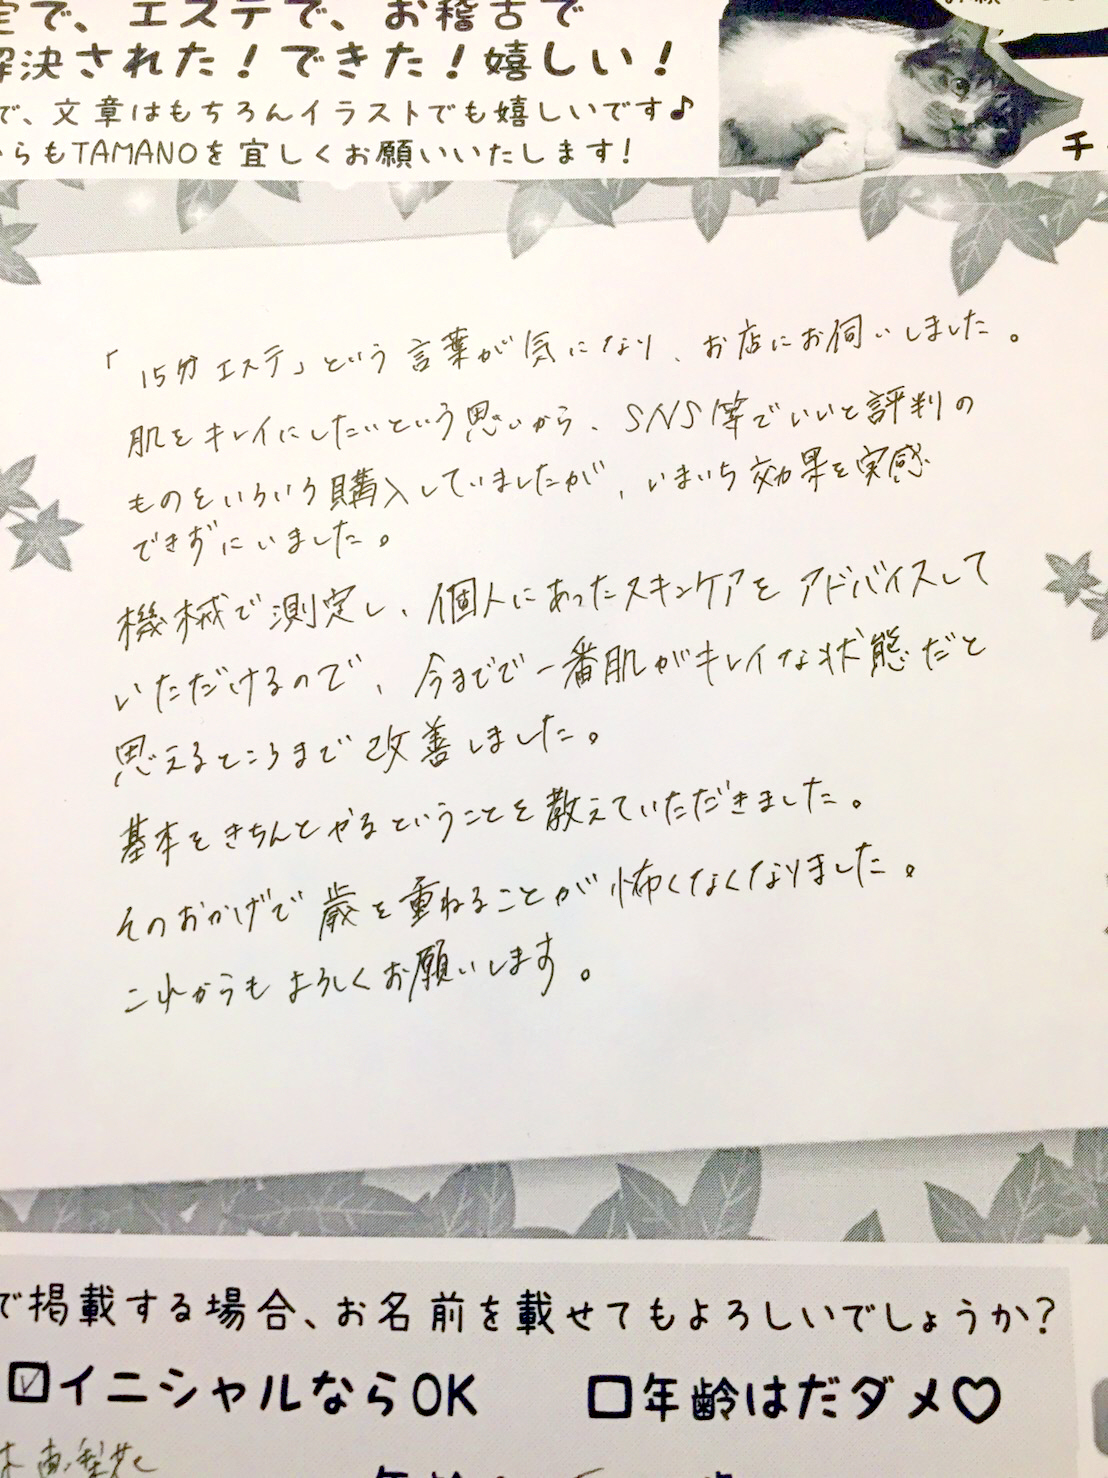 定で、エステで、お稽古で
解決された！できた！嬉しい！
で、文章はもちろんイラストでも嬉しいです♪
からもTAMANOを宜しくお願いいたします！
チ
「15分エステ」という言葉が気になり、お店にお伺いしました。
肌をキレイにしたいという思いから、SNS等でいいと評判の
ものをいろいろ購入していましたが、いまいち効果を実感
できずにいました。
機械で測定し、個人にあったスキンケアをアドバイスして
いただけるので、今までで一番肌がキレイな状態だと
思えるところまで改善しました。
基本をきちんとやるということを教えていただきました。
そのおかげで歳を重ねることが怖くなくなりました。
これからもよろしくお願いします。
で掲載する場合、お名前を載せてもよろしいでしょうか？
☑イニシャルならOK □年齢はだダメ♡